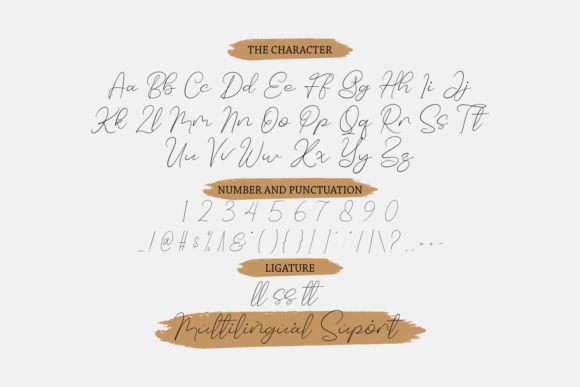 THE CHARACTER
Aa Bb Cc Dd Ee Ff Gg Hh Ii Jj
Kk Ll Mm Nn Oo Pp Qq Rr Ss Tt
Uu Vv Ww Xx Yy Zz
NUMBER AND PUNCTUATION
1 2 3 4 5 6 7 8 9 0
_ ! @ # $ % ^ & * ( ) { } [ ] " ' / | \ ? . , - -
LIGATURE
ll ss tt
Multilingual Suport